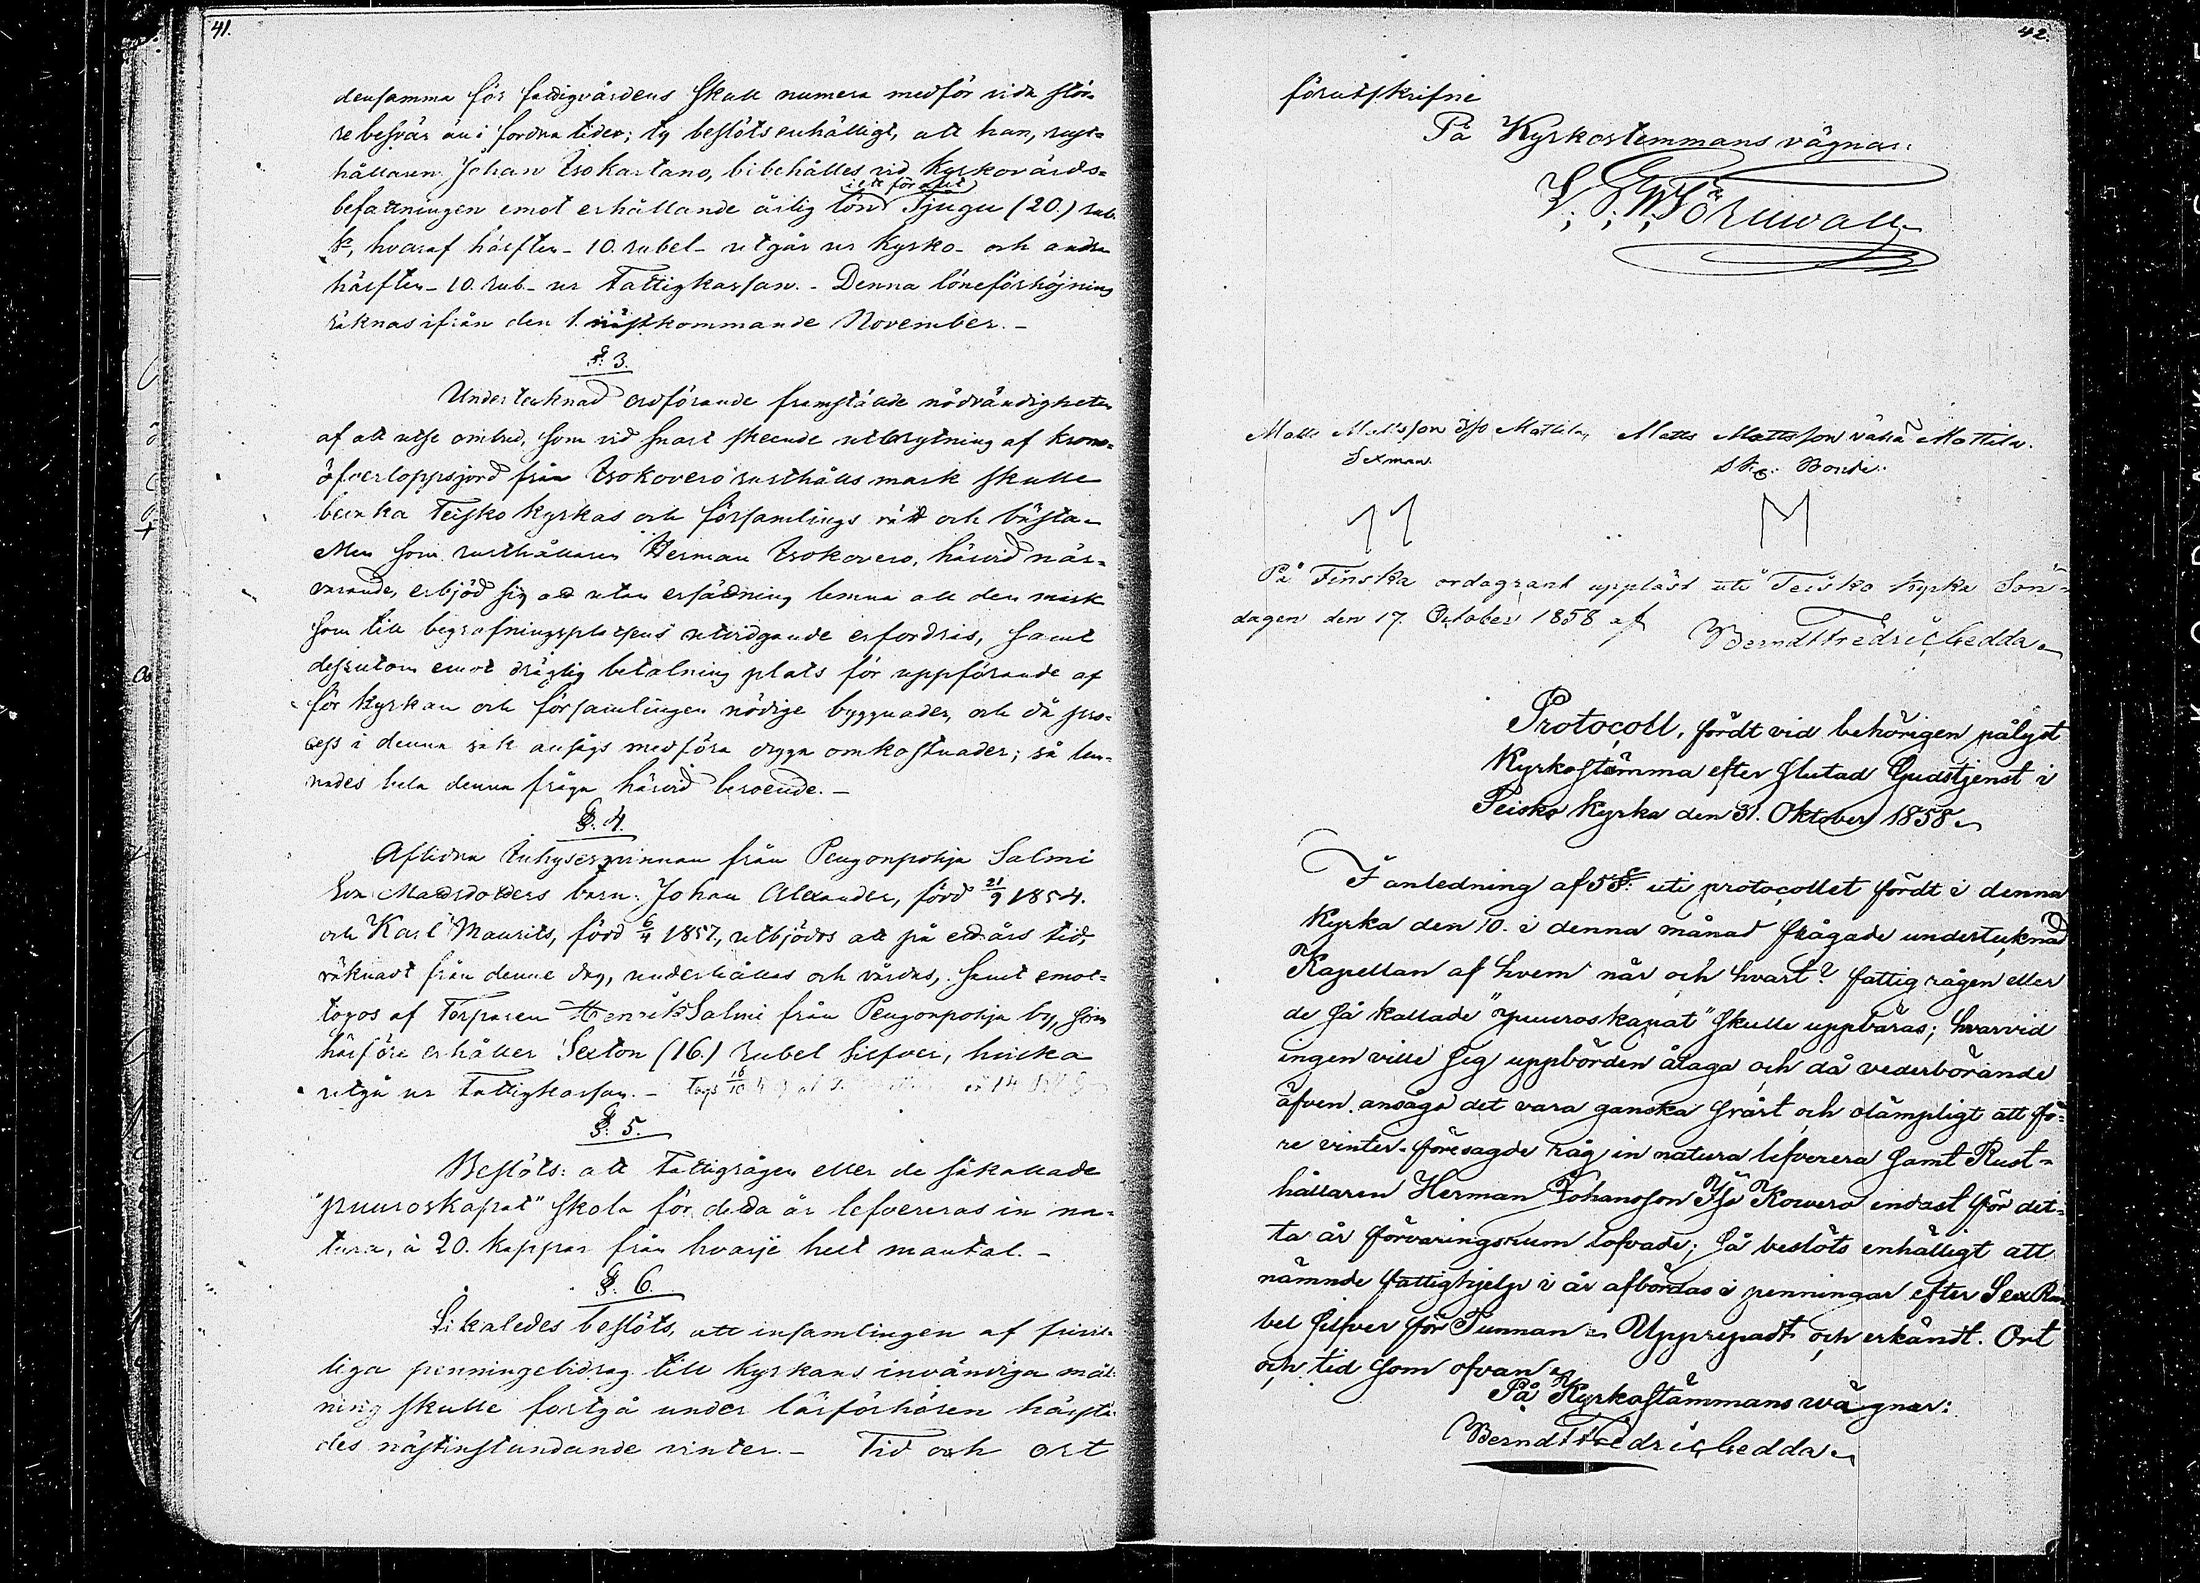 41.
densamma för fattigvårdens skull numera medför vida stör-
re besvär än i fordna tider; ty beslöts enhälligt, att han, rust-
hållaren Johan Isokartano, bibehålles vid kyrkovärds-
befattningen emot erhållande årlig lön Tjugu (20.) rub.
hvaraf hälften - 10. rubel - utgår ur Kyrko- och andra
hälften - 10. rub. - ur Fattigkassan. - Denna löneförhöjning
räknas ifrån den 1. nästkommande November. -
§. 3.
Undertecknad ordförande framstälde nödvändigheten
af att utse ombud, som vid snart skeende utbrytning af krono-
öfverloppsjord från Isokovero rusthålls mark skulle
bevaka Teisko kyrkas och församlings rätt och bästa.
Men som rusthållaren Herman Isokovero, härvid när-
varande, erbjöd sig att utan ersättning lemna all den mark
som till begrafningsplatsens utvidgande erfordras, samt
dessutom emot dräglig betalning plats för uppförande af
för kyrkan och församlingen nödige byggnader, och då pro-
cess i denna sak ansågs medföra dryga omkostnader; så lem-
nades hela denna fråga härvid beroende. -
§. 4.
Aflidna Inhyseqvinnan från Pengonpohja Salmi
Eva Matsdotters barn: Johan Alexander, född 21/9 1854.
och Karl Maurits, född 6/4 1857, utbjödos att på ett års tid,
räknadt från denne dag, underhållas och vårdas, samt emot-
togos af Torparen Henrik Salmi från Pengonpohja by, som
härföre erhåller Sexton (16.) rubel Silfver, hvilka
utgå ur Fattigkassan. -
§. 5.
Beslöts: att Fattigrågen eller de såkallade
"puuroskapat" skola för detta år lefvereras in na-
tura, à 20. kappar från hvarje helt mantal. -
§. 6.
Likaledes beslöts, att insamlingen af frivil-
liga penningebidrag till kyrkans invändiga mål-
ning skulle fortgå under läsförhören härstä-
des nästinstundande vinter. - Tid och ort
42.
förutskrifne
På Kyrkostemmans vägnar:
Matts Mattsson Iso Mattila, Matts Mattsson vähä Mattila.
Sexman. Bonde.
M M
På Finska ordagrant uppläst uti Teisko kyrka Sön-
dagen den 17. October 1858 af Berndt Fredric Gedda
Protocoll, fördt vid behörigen pålyst
Kyrkostämma efter slutad Gudstjenst i
Teisko Kyrka den 31. Oktober 1858
I anledning af 5 §: uti protocollet fördt i denna
Kyrka den 10. i denna månad frågade undertecknad
Kapellan af hvem när och hvart? fattig rågen eller
de så kallade "puuroskapat" skulle uppbäras; hvarvid
ingen ville sig uppbörden åtaga och då vederbörande
äfven ansågo det vara ganska svårt och olämpligt att fö-
re vintern föresagde råg in natura lefverera samt Rust-
hållaren Herman Johansson Iso Kowero endast för det-
ta år förvaringsrum lofvade; så beslöts enhälligt att
nämnde fattighjelp i år afbördas i penningar efter Sex Ru-
bel silfver för Tunnan. Upprepadt och erkändt. Ort
och tid som ofvan
På Kyrkostämmans wägnar:
Berndt Fredric Gedda